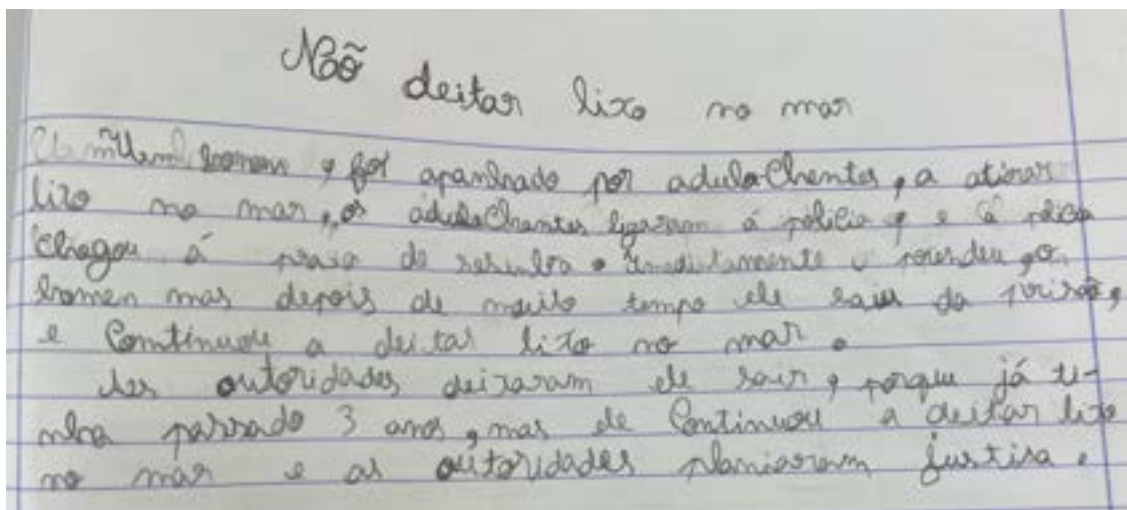 Não deitar lixo no mar
Um homem, foi apanhado por adulachentes, a atirar
lixo no mar, os adulachentes ligaram á polícia, e a polícia
chegou á praia de sesimbra. Imediatamente prendeu, o
homen mas depois de muito tempo ele saiu da prisão,
e Continuou a deitar lixo no mar.
As autoridades deixaram ele sair, porque já ti-
nha passado 3 anos, mas ele Continuou a deitar lixo
no mar e as autoridades planiaram justisa.